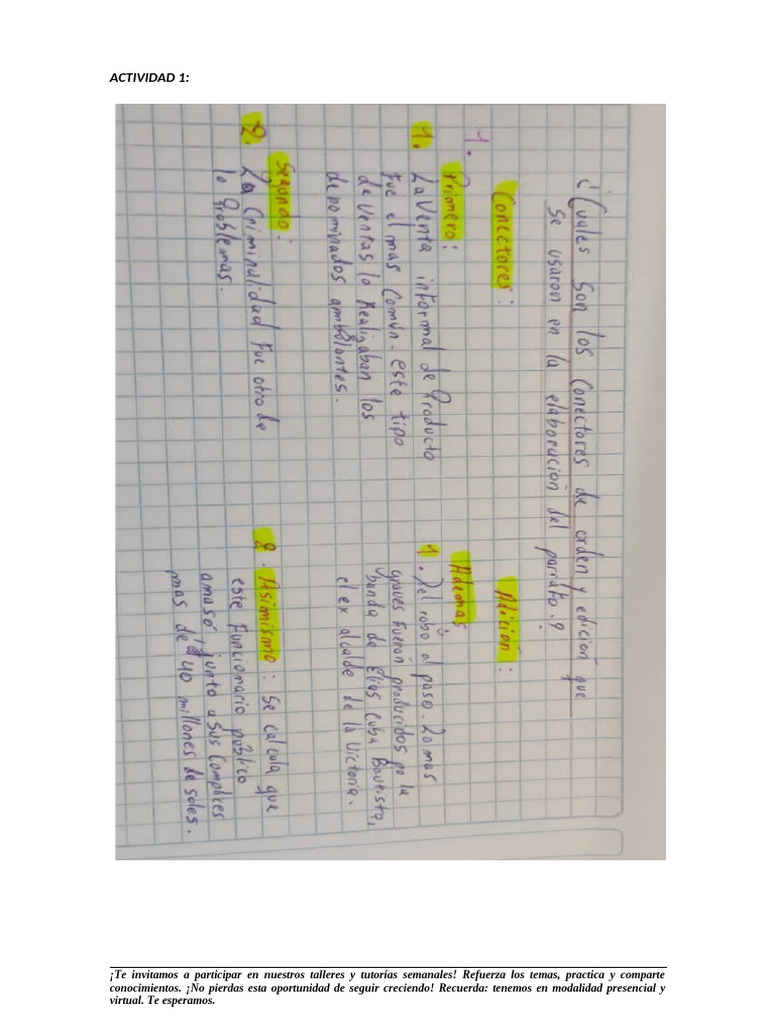 ACTIVIDAD 1:
¿Cuales son los conectores de orden y edición que
se usaron en la elaboración del parrafo.?
Conectores:
1.
Primero:
1. La venta informal de Producto
Fue el mas común. este tipo
de ventas lo Realizaban los
denominados ambulantes.
Segundo:
2. La Criminalidad Fue otro de
lo Problemas.
Adición:
Ademas
1. Del robo al paso. Lo mas
graves Fueron producidos po la
banda de Elias Cuba Bautista,
el ex alcalde de la Victoria.
2. Asimismo: Se calcula que
este Funcionario público
amasó junto a sus Complices
mas de 40 millones de soles.
¡Te invitamos a participar en nuestros talleres y tutorías semanales! Refuerza los temas, practica y comparte
conocimientos. ¡No pierdas esta oportunidad de seguir creciendo! Recuerda: tenemos en modalidad presencial y
virtual. Te esperamos.